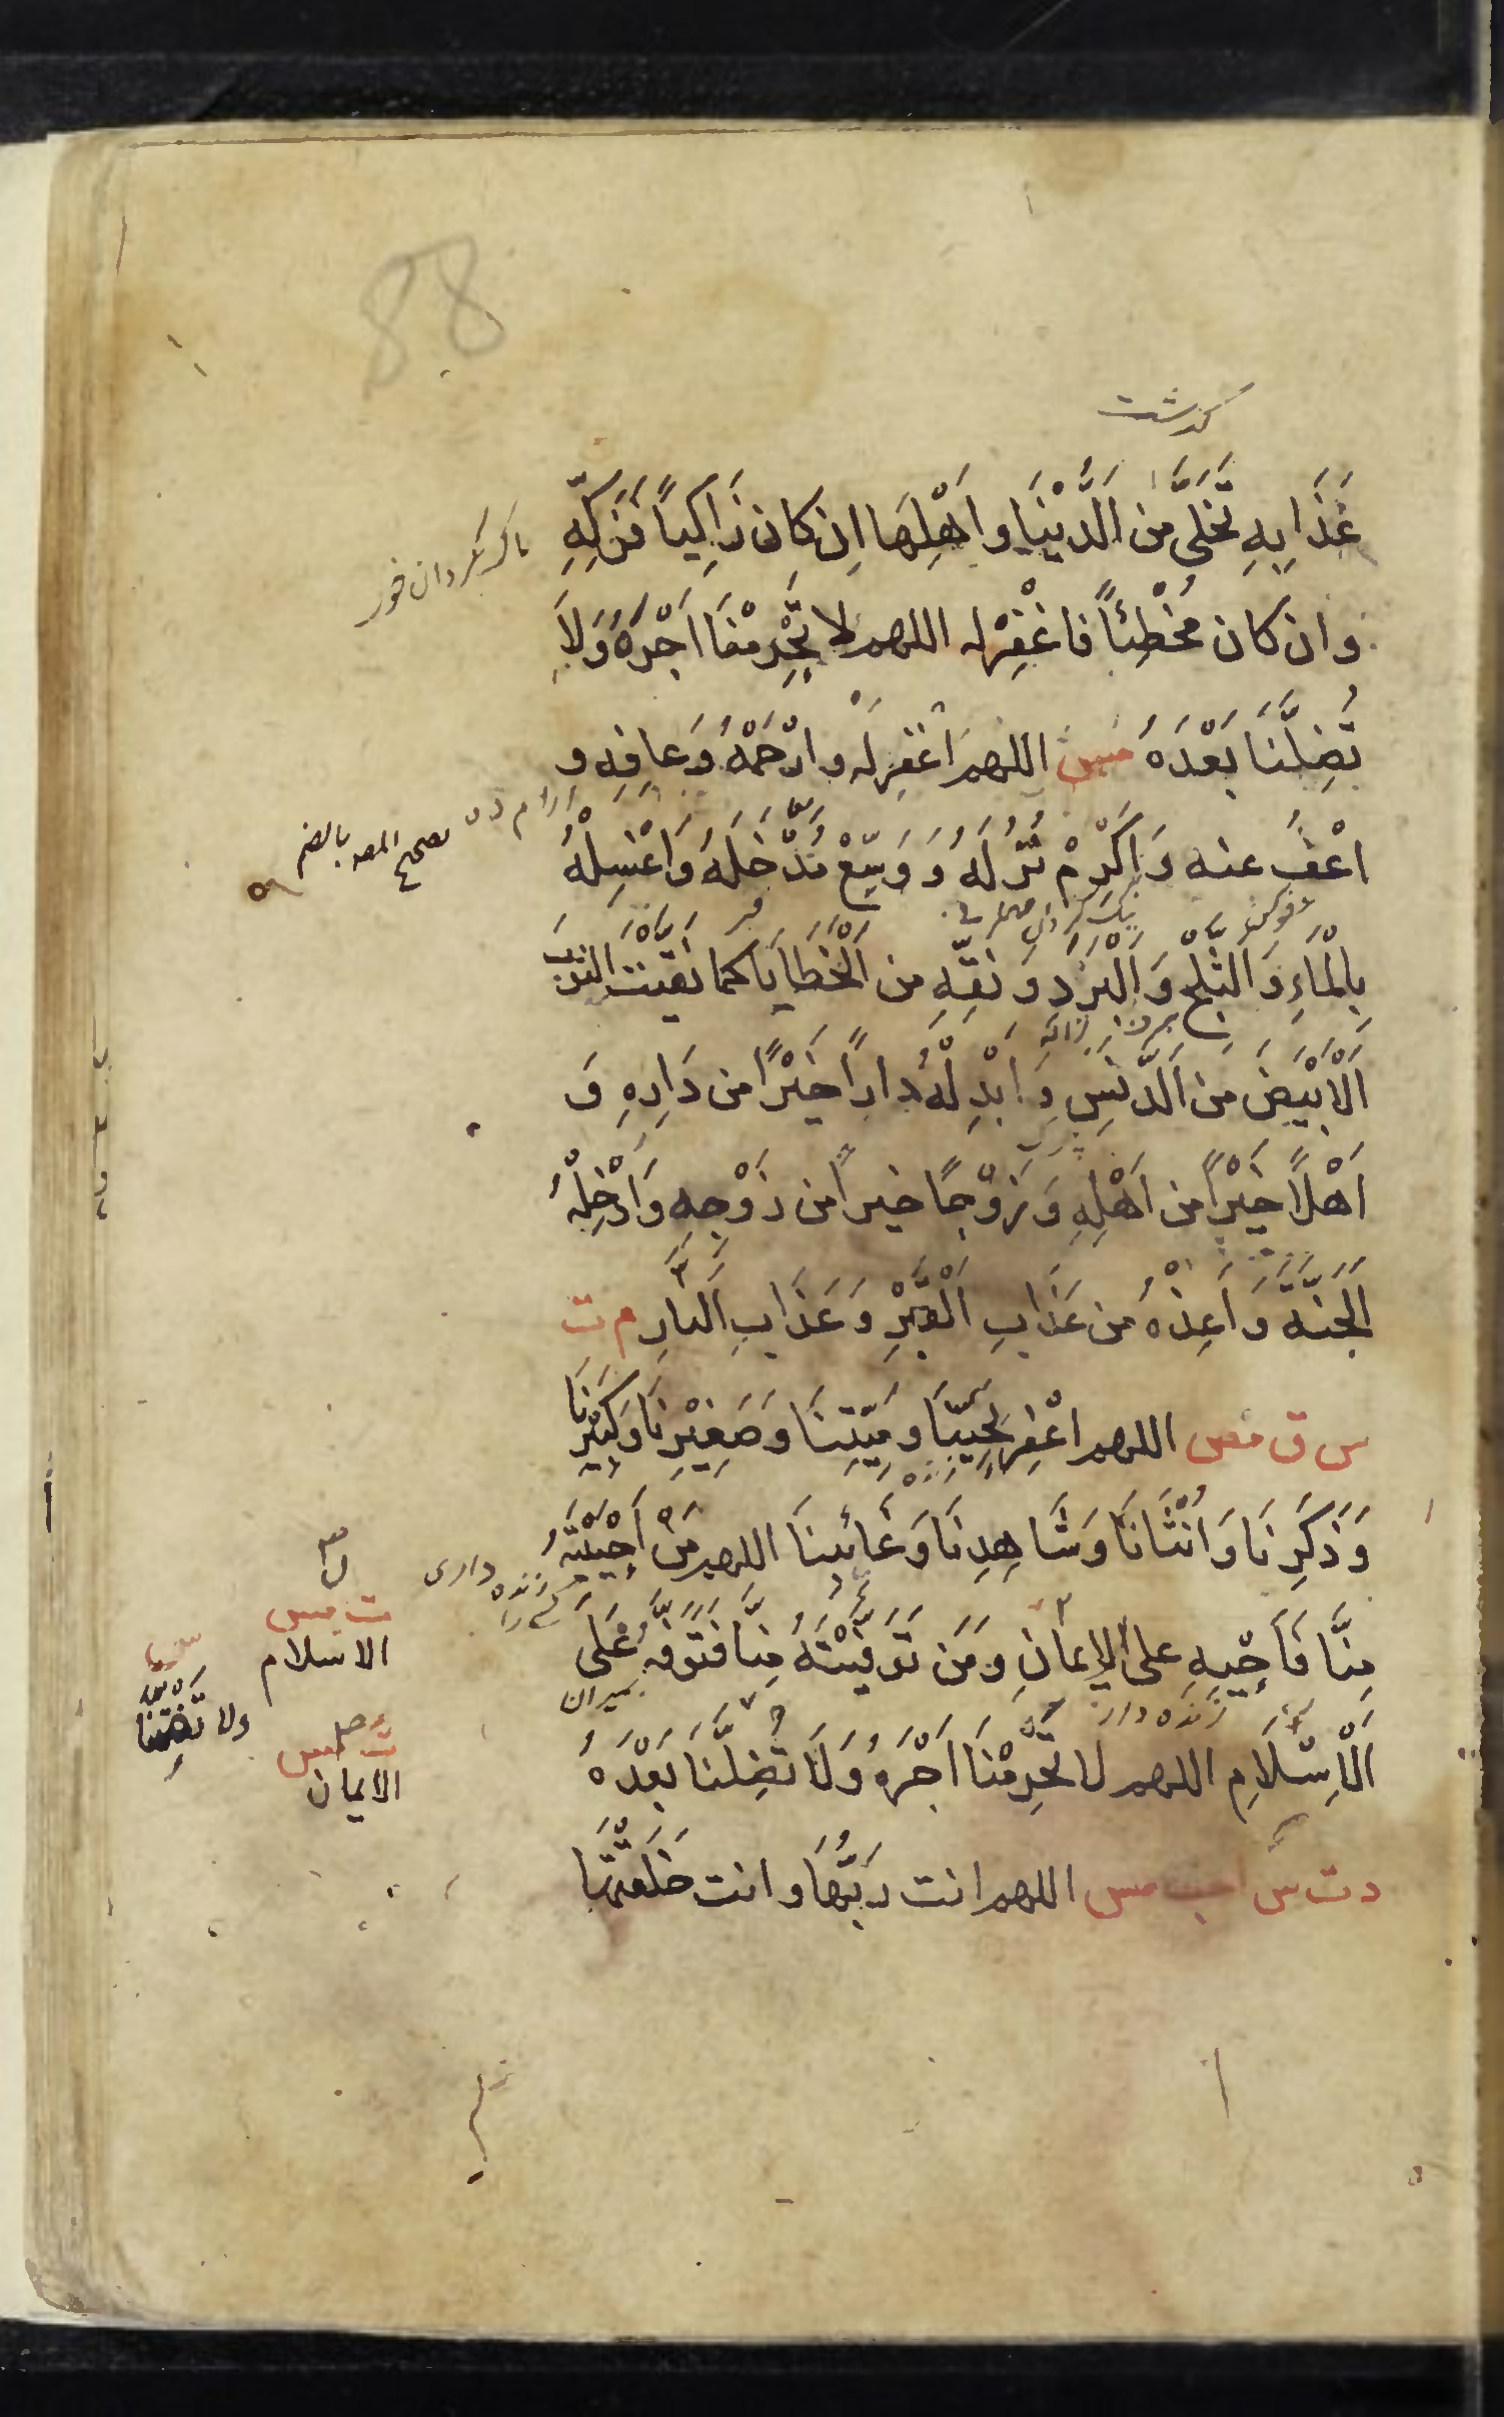 88
گذشت
عَذَابِهِ تَخَلَّى مِنَ الدُّنْيَا وَ اَهْلِهَا اِن كان زَاكِياً فَزَكِّهِ
وان كان مُخْطِئاً فَاغْفِرْ له اللهم لا تَحْرِمْنَا اَجْرَهُ وَلاَ
تُضِلَّنَا بَعْدَهُ مس اللهم اغْفِر لَهُ وَارْحَمْهُ وَعَافِهِ وَ
اعْفُ عنه وَاَكْرِمْ نُزُلَهُ وَ وَسِّعْ مُدْخَلَهُ وَاغْسِلْهُ
بِالْمَاءِ وَالثَّلْجِ وَالْبَرَدِ وَ نَقِّهِ من الْخَطَايَا كما نَقَّيْتَ الثوبَ
الْاَبْيَضَ مِنَ الدَّنَسِ وَ اَبْدِلْهُ دَاراً خَيْرًا من دَارِهِ وَ
اَهْلاً خَيْرًا من اَهْلِهِ وَ زَوْجًا خيراً من زَوْجِهِ وَ اَدْخِلْهُ
الْجَنَّةَ وَ اَعِذْهُ من عَذَابِ الْقَبْرِ وَ عَذَابِ النَّارِ م ت
س ق مص اللهم اغْفِر لِحَيِّنَا وَ مَيِّتِنَا وَ صَغِيْرِنَا وَكَبِيْرِنَا
وَ ذَكَرِنَا وَ اُنْثَانَا وَ شَاهِدِنَا وَ غَائِبِنَا اللهم مَنْ اَحْيَيْتَهُ
مِنَّا فَاَحْيِهِ على الْاِيمَانِ وَ مَن تَوَفَّيْتَهُ مِنَّا فَتَوَفَّهُ عَلَى
الْاِسْلَامِ اللهم لا تَحْرِمْنَا اَجْرَهُ وَ لَا تُضِلَّنَا بَعْدَهُ
د ت س حب مس اللهم انت رَبُّهَا وانت خَلَقْتَهَا
زنده داری
ت مس
الاسلام
ولا تَفْتِنَّا
الايمان
زنده دار
بميران